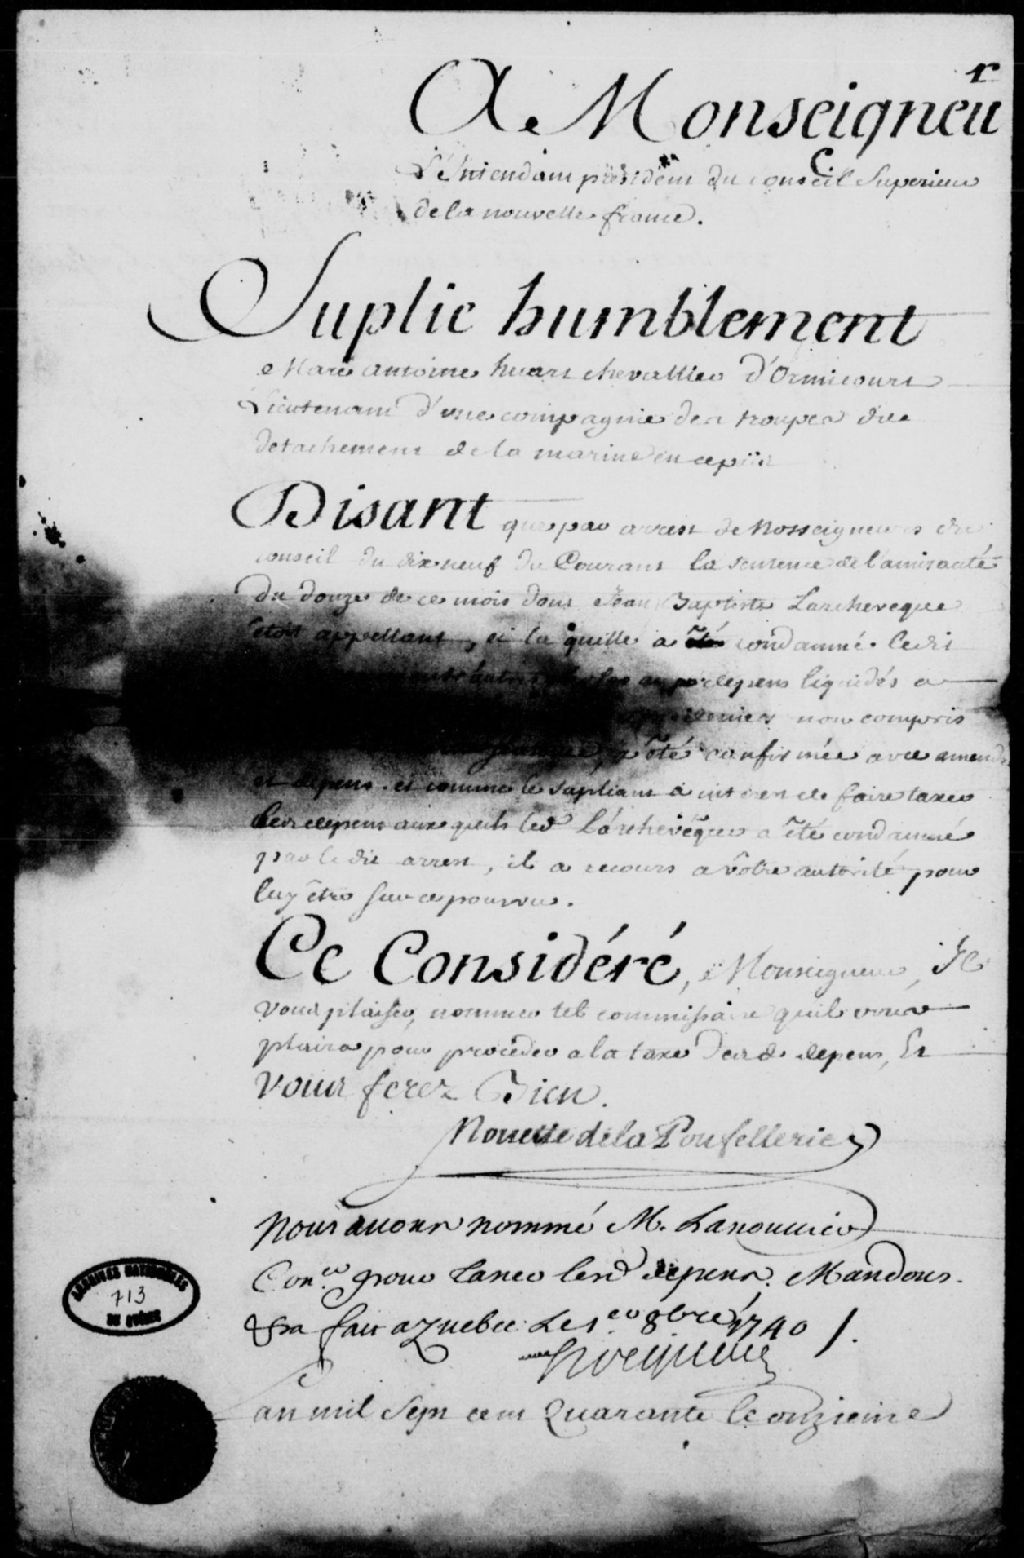 A Monseigneur
L'Intendant président du conseil Superieur
de la nouvelle france.
Suplie humblement
Marc antoine huart chevallier d'Ormicourt
Lieutenant d'une compagnie des troupes du
detachement de la marine en ce païs
Disant que par arrest de Nosseigneurs du
conseil du dix neuf du Courant la sentence de l'amirauté
du douze de ce mois dont Jean Baptiste Larcheveque
étoit appellant, et la quelle a condamné ledit
depens liquidés a
deniers non compris
a été confirmée avec amende
et depens. et comme le supliant a interest de faire taxer
les depens aux quels led Larchevêque a été condamné
par le dit arrest, il a recours a vôtre autorité pour
luy être sur ce pourvu.
Ce Considéré, Monseigneur, Il
vous plaise, nommer tel commissaire quil vous
plaira pour proceder a la taxe desd. depens, Et
vous ferez Bien.
Nouette de la Poufellerie
Nous avons nommé M. Lanoullier
Con.er pour taxer lesd depens. Mandons.
&a fait a Quebec le 1er 8bre 1740 /.
Hocquart
an mil Sept cent Quarante le onzieme
ARCHIVES NATIONALES
713
DE QUÉBEC